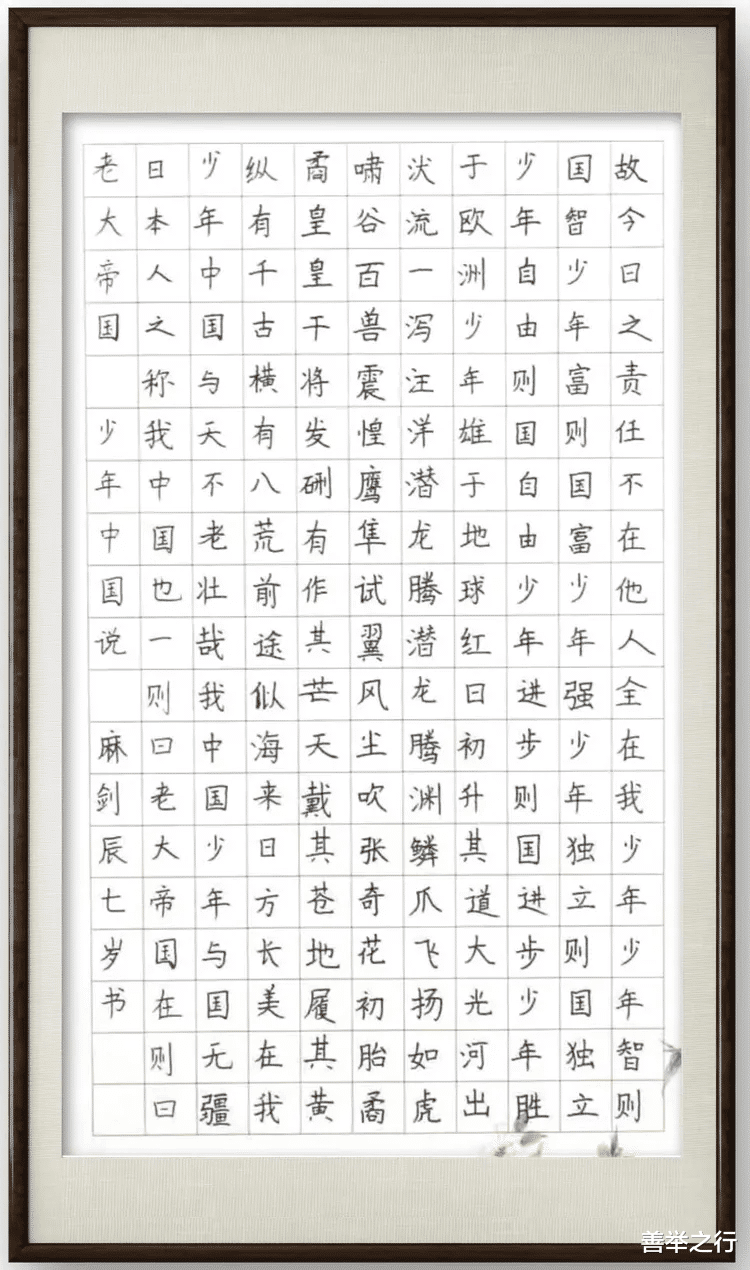 故今日之责任不在他人全在我少年少年智则
国智少年富则国富少年强少年独立则国独立
少年自由则国自由少年进步则国进步少年胜
于欧洲少年雄于地球红日初升其道大光河出
汱流一泻汪洋潜龙腾潜龙腾渊鳞爪飞扬如虎
啸谷百兽震惶鹰隼试翼风尘吹张奇花初胎矞
矞皇皇干将发硎有作其芒天戴其苍地履其黄
纵有千古横有八荒前途似海来日方长美在我
少年中国与天不老壮哉我中国少年与国无疆
日本人之称我中国也一则曰老大帝国在则曰
老大帝国 少年中国说 麻剑辰七岁书
善举之行